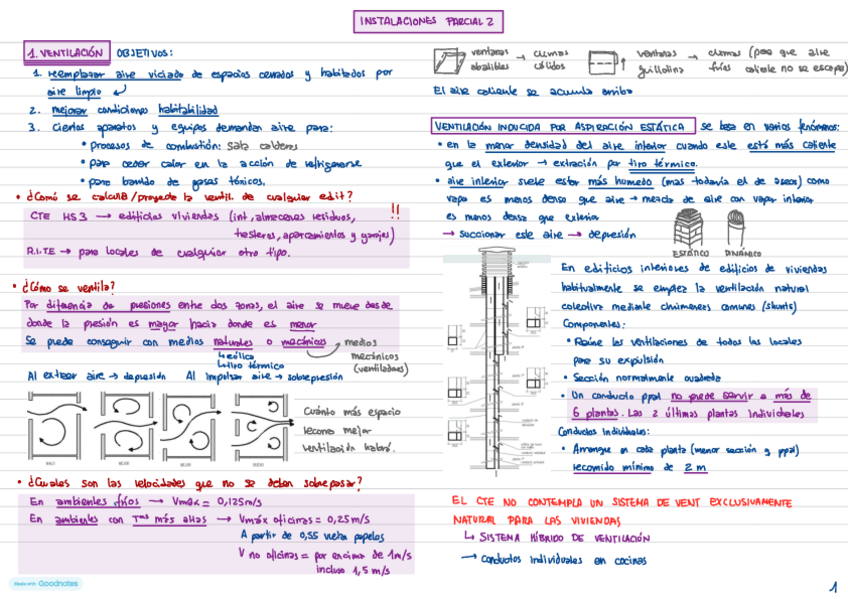 INSTALACIONES PARCIAL 2
1. VENTILACIÓN OBJETIVOS:
1. reemplazar aire viciado de espacios cerrados y habitados por
aire limpio
2. mejorar condiciones habitabilidad
3. Ciertos aparatos y equipos demandan aire para:
• procesos de combustión: sala calderas
• para ceder calor en la acción de refrigerarse
• para barrido de gases tóxicos.
• ¿Cómo se calcula/proyecta la ventil. de cualquier edif?
CTE HS3 → edificios viviendas (int, almacenes residuos, !!
trasteros, aparcamientos y garajes)
R.I.T.E → para locales de cualquier otro tipo.
• ¿Cómo se ventila?
Por diferencia de presiones entre dos zonas, el aire se mueve desde
donde la presión es mayor hacia donde es menor
Se puede conseguir con medios naturales o mecánicos
↳ eólica
↳ tiro térmico
medios
mecánicos
(ventiladores)
Al extraer aire → depresión Al impulsar aire → sobrepresión
MALO MEJOR MEJOR BUENO
Cuánto más espacio
recorra mejor
ventilación habrá.
• ¿Cuales son las velocidades que no se deben sobrepasar?
En ambientes fríos → Vmáx = 0,125m/s
En ambientes con Tªs más altas → Vmáx oficinas = 0,25m/s
A partir de 0,55 vuela papeles
V no oficinas = por encima de 1m/s
incluso 1,5 m/s
Made with Goodnotes
ventanas abatibles → climas cálidos
ventanas guillotina → climas fríos (para que aire caliente no se escape)
El aire caliente se acumula arriba
VENTILACIÓN INDUCIDA POR ASPIRACIÓN ESTÁTICA se basa en varios fenómenos:
• en la menor densidad del aire interior cuando este está más caliente
que el exterior → extracción por tiro térmico.
• aire interior suele estar más humedo (mas todavía el de aseos) como
vapor es menos denso que aire → mezcla de aire con vapor interior
es menos densa que exterior
→ succionar este aire → depresión
ESTÁTICO DINÁMICO
En edificios interiores de edificios de viviendas
habitualmente se emplea la ventilación natural
colectiva mediante chimeneas comunes (shunts)
Componentes:
• Reúne las ventilaciones de todos los locales
para su expulsión
• Sección normalmente cuadrada
• Un conducto ppal no puede servir a más de
6 plantas. Las 2 últimas plantas individuales
Conductos individuales:
• Arrancan en cada planta (menor sección q ppal)
recorrido mínimo de 2 m
EL CTE NO CONTEMPLA UN SISTEMA DE VENT EXCLUSIVAMENTE
NATURAL PARA LAS VIVIENDAS
↳ SISTEMA HÍBRIDO DE VENTILACIÓN
→ conductos individuales en cocinas
1